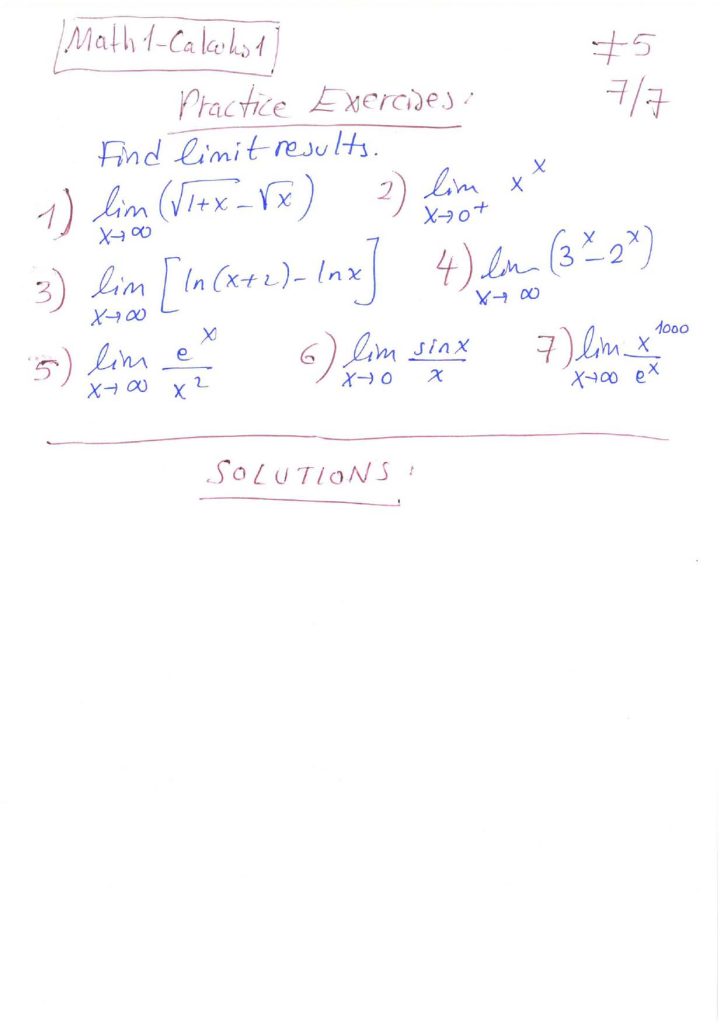 Math 1-Calculus 1
#5
7/7
Practice Exercises:
Find limit results.
1) lim x→∞ (√1+x - √x) 2) lim x→0+ x^x
3) lim x→∞ [ln(x+2) - lnx] 4) lim x→∞ (3^x - 2^x)
5) lim x→∞ e^x/x^2 6) lim x→0 sinx/x 7) lim x→∞ x^1000/e^x
SOLUTIONS: